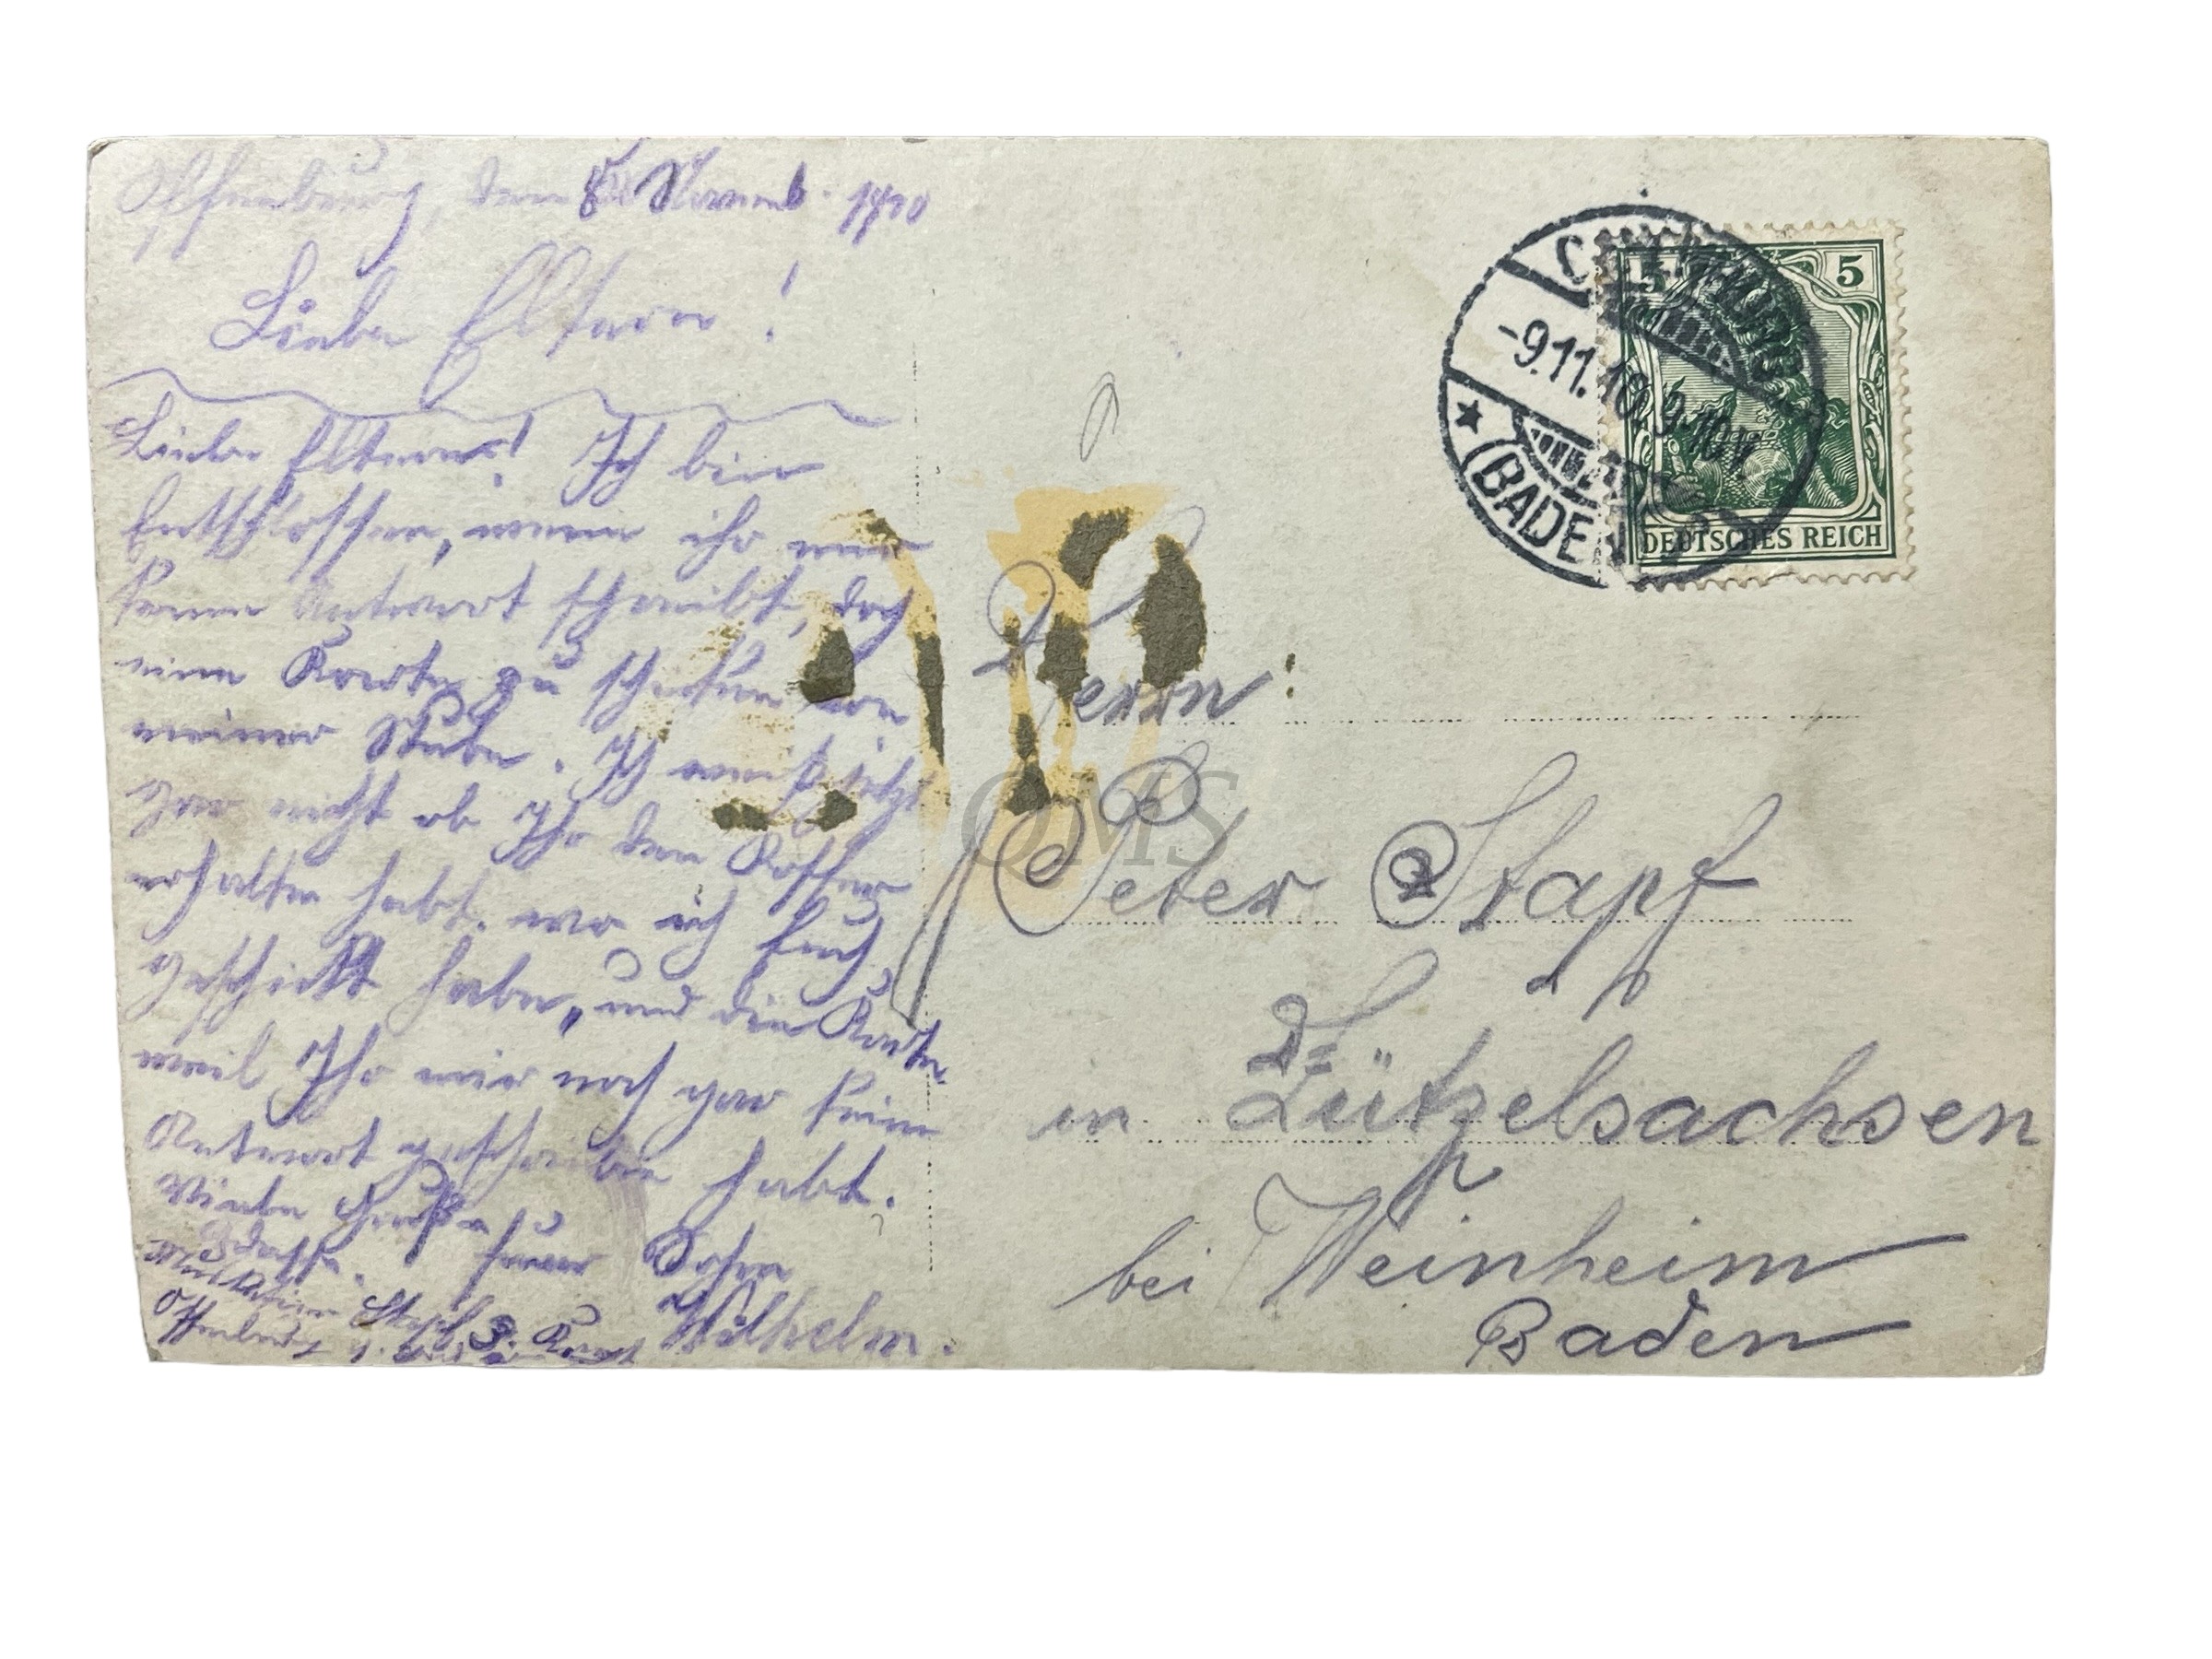 Offenburg, den 8. Novemb. 1910
Liebe Eltern!
Liebe Eltern! Ich bin
Entschlossen, wenn ihr mir
keine Antwort schreibt, doch
eine Karte zu schicken von
meiner Stube. Ich weiß jetzt
gar nicht ob Ihr den Koffer
erhalten habt. wo ich Euch
geschickt habe, und die Karte
weil Ihr mir noch gar keine
Antwort geschrieben habt.
Viele Grüße Euer Sohn
Wilhelm.
Adresse.
Musketier Stapf 3. Komp.
Offenburg
OFFENBURG
-9.11.10. 9-10V.
★ (BADEN)
5 5
DEUTSCHES REICH
Herrn:
Peter Stapf
in Lützelsachsen
bei Weinheim
Baden
QMS